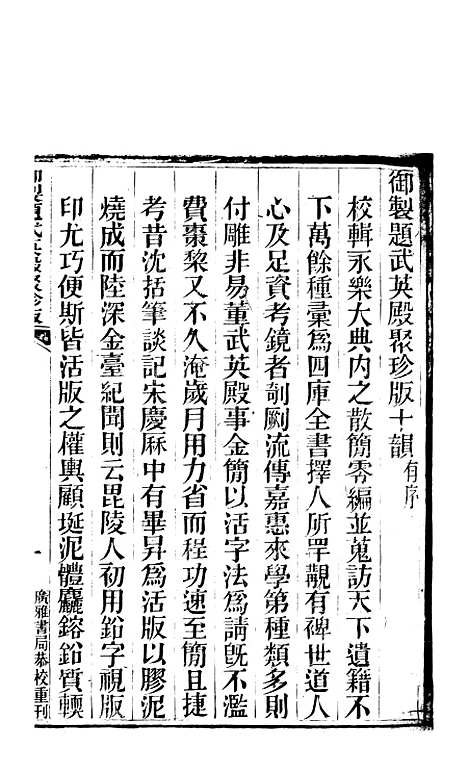 御製題武英殿聚珍版十韻有序
校輯永樂大典內之散簡零編並蒐訪天下遺籍不
下萬餘種彙為四庫全書擇人所罕觀有碑世道人
心及足資考鏡者剞劂流傳嘉惠來學第種類多則
付雕非易董武英殿事金簡以活字法為請旣不濫
費棗棃又不久淹歲月用力省而程功速至簡且捷
考昔沈括筆談記宋慶厤中有畢昇為活版以膠泥
燒成而陸深金臺紀聞則云毘陵人初用鉛字視版
印尤巧便斯皆活版之權輿顧埏泥體麤鎔鉛質輭
御製題武英殿聚珍版
一
廣雅書局恭校重刊